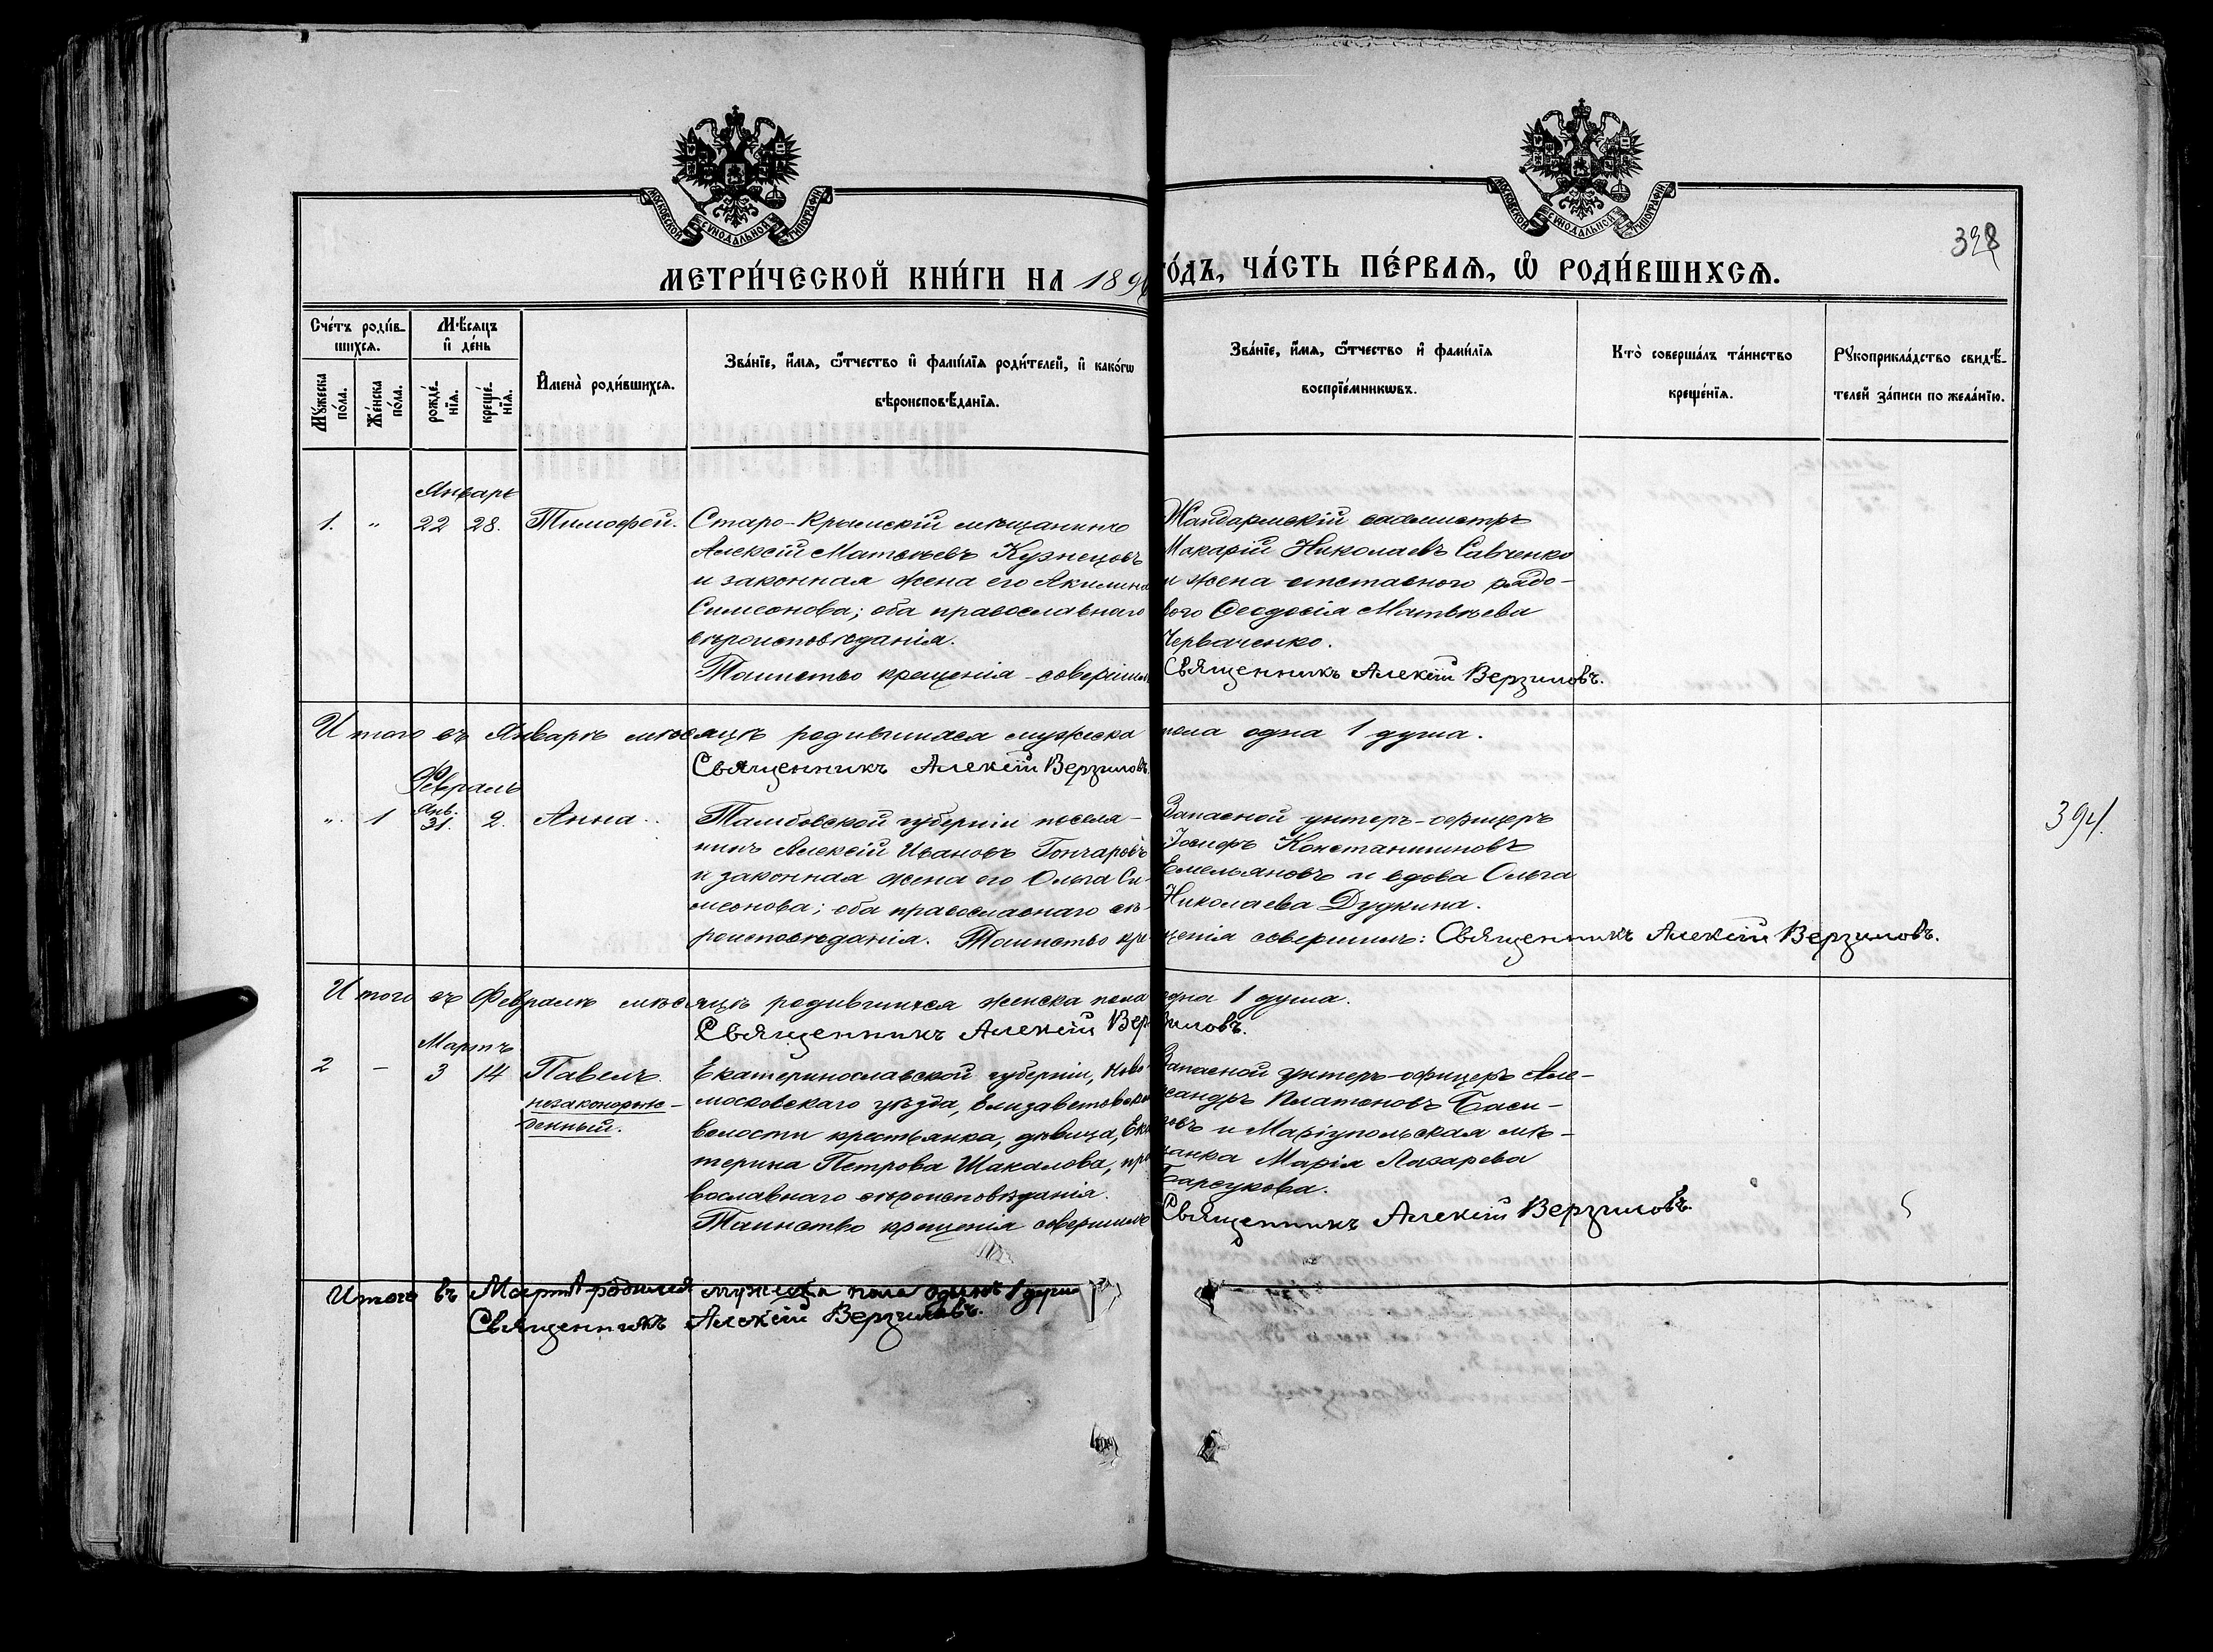 МОСКОВСКОЙ СѴНОДАЛЬНОЙ ТИПОГРАФІИ
МОСКОВСКОЙ СѴНОДАЛЬНОЙ ТИПОГРАФІИ
МЕТРИ́ЧЕСКОЙ КНИ́ГИ НА 189
О́ДЪ, ЧА́СТЬ ПЕ́РВАѦ, Ѡ҆ РОДИ́ВШИХСѦ.
Сче́тъ роди́вшихсѧ.
Мꙋ́жеска по́ла.
Же́нска по́ла.
Мѣ́сѧцъ и҆ де́нь
рожде́нїѧ.
креще́нїѧ.
И҆мена̀ роди́вшихсѧ.
Зва́нїе, и҆́мѧ, ѻ҆́тчество и҆ фами́лїѧ роди́телей, и҆ како́гѡ
вѣроисповѣ́данїѧ.
Зва́нїе, и҆́мѧ, ѻ҆́тчество и҆ фами́лїѧ
воспрїе́мникѡвъ.
Кто̀ соверша́лъ та́инство
креще́нїѧ.
Рꙋкоприкла́дство свидѣ́-
телей за́писи по жела́нїю.
Январь
1. " 22 28. Тимофей. Старо-Крымскій мѣщанинъ
Алексій Матвѣевъ Кузнецовъ
и законная жена его Акилина
Симеонова; оба православнаго
вѣроисповѣданія.
Таинство крещенія совершилъ
Жандармскій вахмистръ
Макарій Николаевъ Савченко
и жена отставного рядо-
вого Ѳеодосія Матвѣева
Черваченко.
Священникъ Алексій Верзиловъ.
Итого въ Январѣ мѣсяцѣ родившихся мужеска пола одна 1 душа.
Священникъ Алексій Верзиловъ.
Февраль
" 1 Янв. 31. 2. Анна. Тамбовской губерніи поселя-
нинъ Алексій Ивановъ Гончаровъ
и законная жена его Ольга Си-
меонова; оба православнаго вѣ-
роисповѣданія. Таинство кре-
Запасной унтеръ-офицеръ
Іосифъ Константиновъ
Емельяновъ и вдова Ольга
Николаева Дудкина.
щенія совершилъ: Священникъ Алексій Верзиловъ.
394.
Итого въ Февралѣ мѣсяцѣ родившихся женска пола одна 1 душа.
Священникъ Алексій Верзиловъ.
Мартъ
2 - 3 14 Павелъ.
незаконорож-
денный.
Екатеринославской губерніи, Ново-
московскаго уѣзда, Елизаветовской
волости крестьянка, дѣвица, Ека-
терина Петрова Шакалова, пра-
вославнаго вѣроисповѣданія.
Таинство крещенія совершилъ
Запасной унтеръ-офицеръ Але-
ксандръ Платоновъ
и Маріупольская мѣ-
щанка Марія Лазарева
Барсукова.
Священникъ Алексій Верзиловъ.
Итого въ Мартѣ родился мужеска пола одна 1 душа
Священникъ Алексій Верзиловъ.